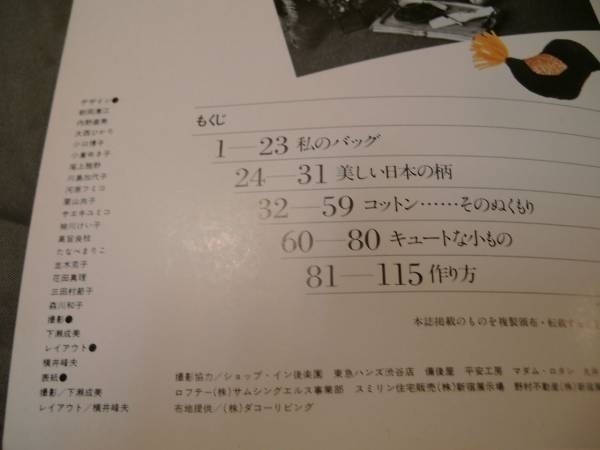 デザイン●
内野直美
大西ひかり
小口博子
小倉ゆき子
尾上雅野
川島加代子
河原フミコ
栗山尚子
サエキユミコ
細川けい子
高習良枝
たなべまりこ
並木克子
花田真理
三田村節子
森川和子
撮影●
下瀬成美
レイアウト●
横井峰夫
表紙●
撮影/下瀬成美
レイアウト/横井峰夫
もくじ
1—23 私のバッグ
24—31 美しい日本の柄
32—59 コットン……そのぬくもり
60—80 キュートな小もの
81—115 作り方
本誌掲載のものを複製頒布・転載する
撮影協力/ショップ・イン後楽園 東急ハンズ渋谷店 備後屋 平安工房 マダム・ロタン
ロフテー(株)サムシングエルス事業部 スミリン住宅販売(株)新宿展示場 野村不動産(株)新宿
布地提供/(株)ダコーリビング